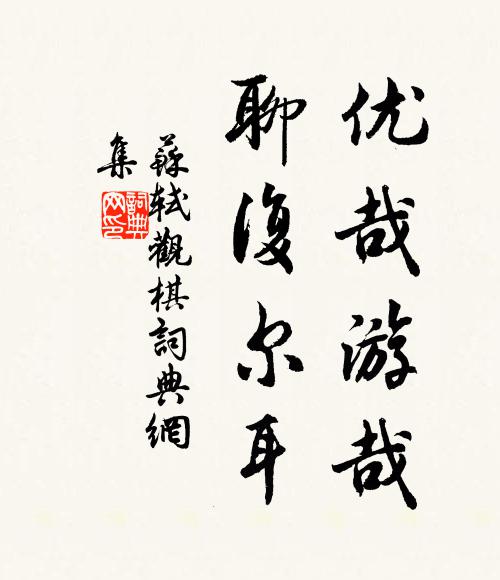 优哉游哉
聊復尔耳
蘇軾觀棋詞典網
集
詞典
网印